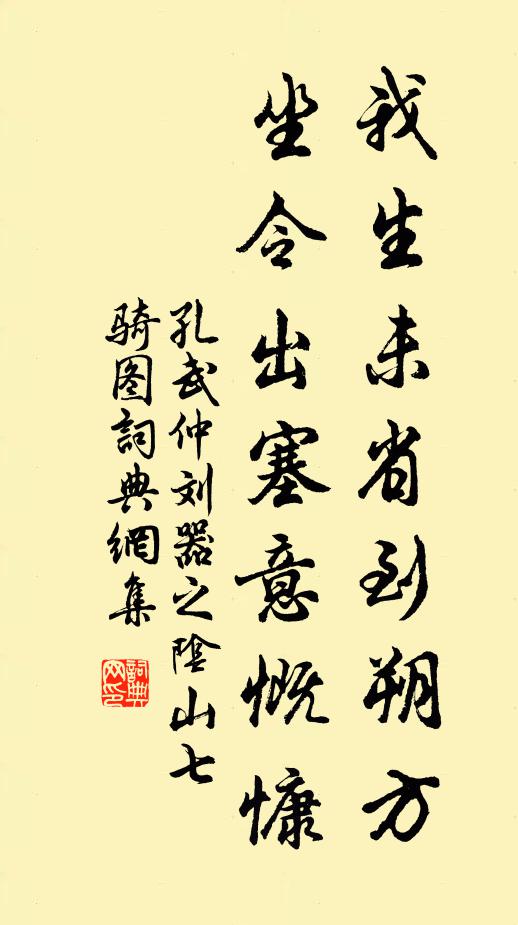 我生未省到朔方
坐令出塞意慨慷
孔武仲刘器之陰山七
骑图詞典網集
詞典
网印